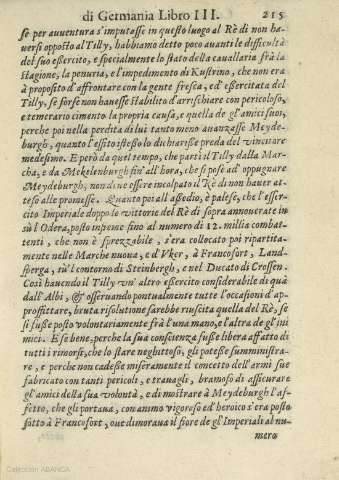 di Germania Libro III. 215
se per auuentura s'imputasse in questo luogo al Rè di non ha-
uersi opposto al Tilly, habbiamo detto poco auanti le difficultà
del suo essercito, e specialmente lo stato della cauallaria frà la
stagione, la penuria, e l'impedimento di Kustrino, che non era
à proposito d'affrontare con la gente fresca, ed' essercitata del
Tilly, se forse non hauesse stabilito d'arrischiare con pericoloso,
e temerario cimento la propria causa, e quella de gl'amici suoi,
perche poi nella perdita di lui tanto meno auanzasse Meyde-
burgh, quanto l'essito istesso lo dichiarisse preda del vincitore
medesimo. E però da quel tempo, che parti il Tilly dalla Mar-
cha, e da Mekelenburgh fin'all'hora, che si pose ad'oppugnare
Meydeburgh, non deue essere incolpato il Rè di non hauer at-
teso alle promesse. Quanto poi all'assedio, è palese, che l'esser-
cito Imperiale doppo le vittorie del Rè di sopra annouerate in
sù l'Odera, posto insieme fino al numero di 12. millia combat-
tenti, che non è sprezzabile, s'era collocato poi ripartita-
mente nelle Marche nuoua, e d'Vker, à Francofort, Land-
sperga, sù'l contorno di Steinbergh, e nel Ducato di Crossen.
Così hauendo il Tilly vn'altro essercito considerabile di quà
dall'Albi, & osseruando pontualmente tutte l'occasioni d'ap-
profittare, bruta risolutione sarebbe riuscita quella del Rè, se
si fusse posto volontariamente frà l'una mano, e l'altra de gl'ini-
mici. E se bene, perche la sua conscienza fusse libera affatto di
tutti i rimorsi, che lo stare neghittoso, gli potesse summinstra-
re, e perche non cadesse miseramente il concetto dell'armi sue
fabricato con tanti pericoli, e trauagli, bramoso di assicurare
gl'amici della sua volontà, e di mostrare à Meydeburgh l'af-
fetto, che gli portaua, con animo vigoroso ed'heroico s'era posto
sotto à Francofort, oue dimoraua il fiore de gl'Imperiali al nu-
mero
Colección ABANCA